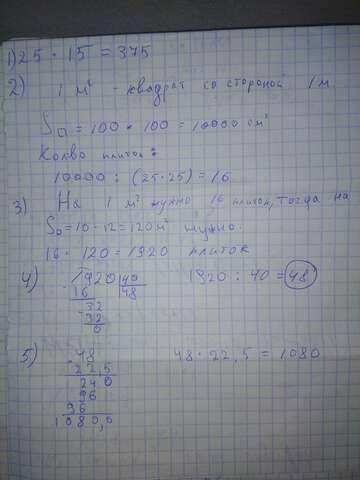 1) 25 · 15 = 375
2) 1 м² - квадрат со стороной 1 м
S□ = 100 · 100 = 10000 см²
Кол-во плиток:
10000 : (25·25) = 16
3) На 1 м² нужно 16 плиток, тогда на
S□ = 10 · 12 = 120 м² нужно:
16 · 120 = 1920 плиток
4) 1920 40 1920 : 40 = 48
16 48
-32
32
0
5) 48 48 · 22,5 = 1080
22,5
240
96
96
1080,0